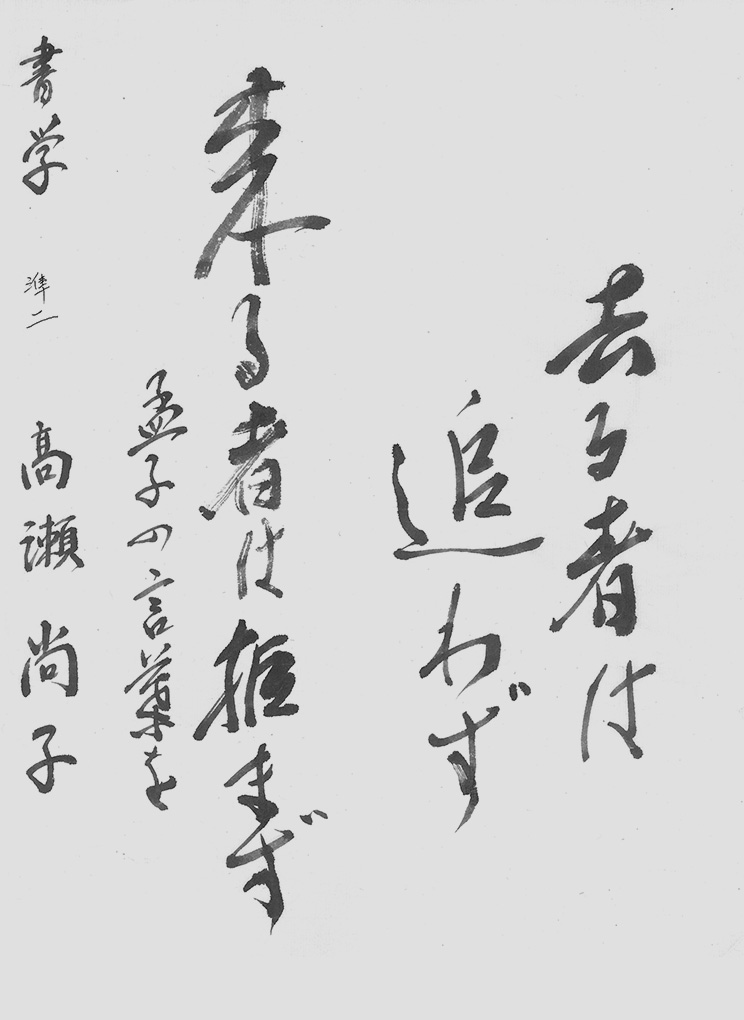 去る者は
追わず
来る者は拒まず
孟子の言葉を
書学 準二 高瀬尚子